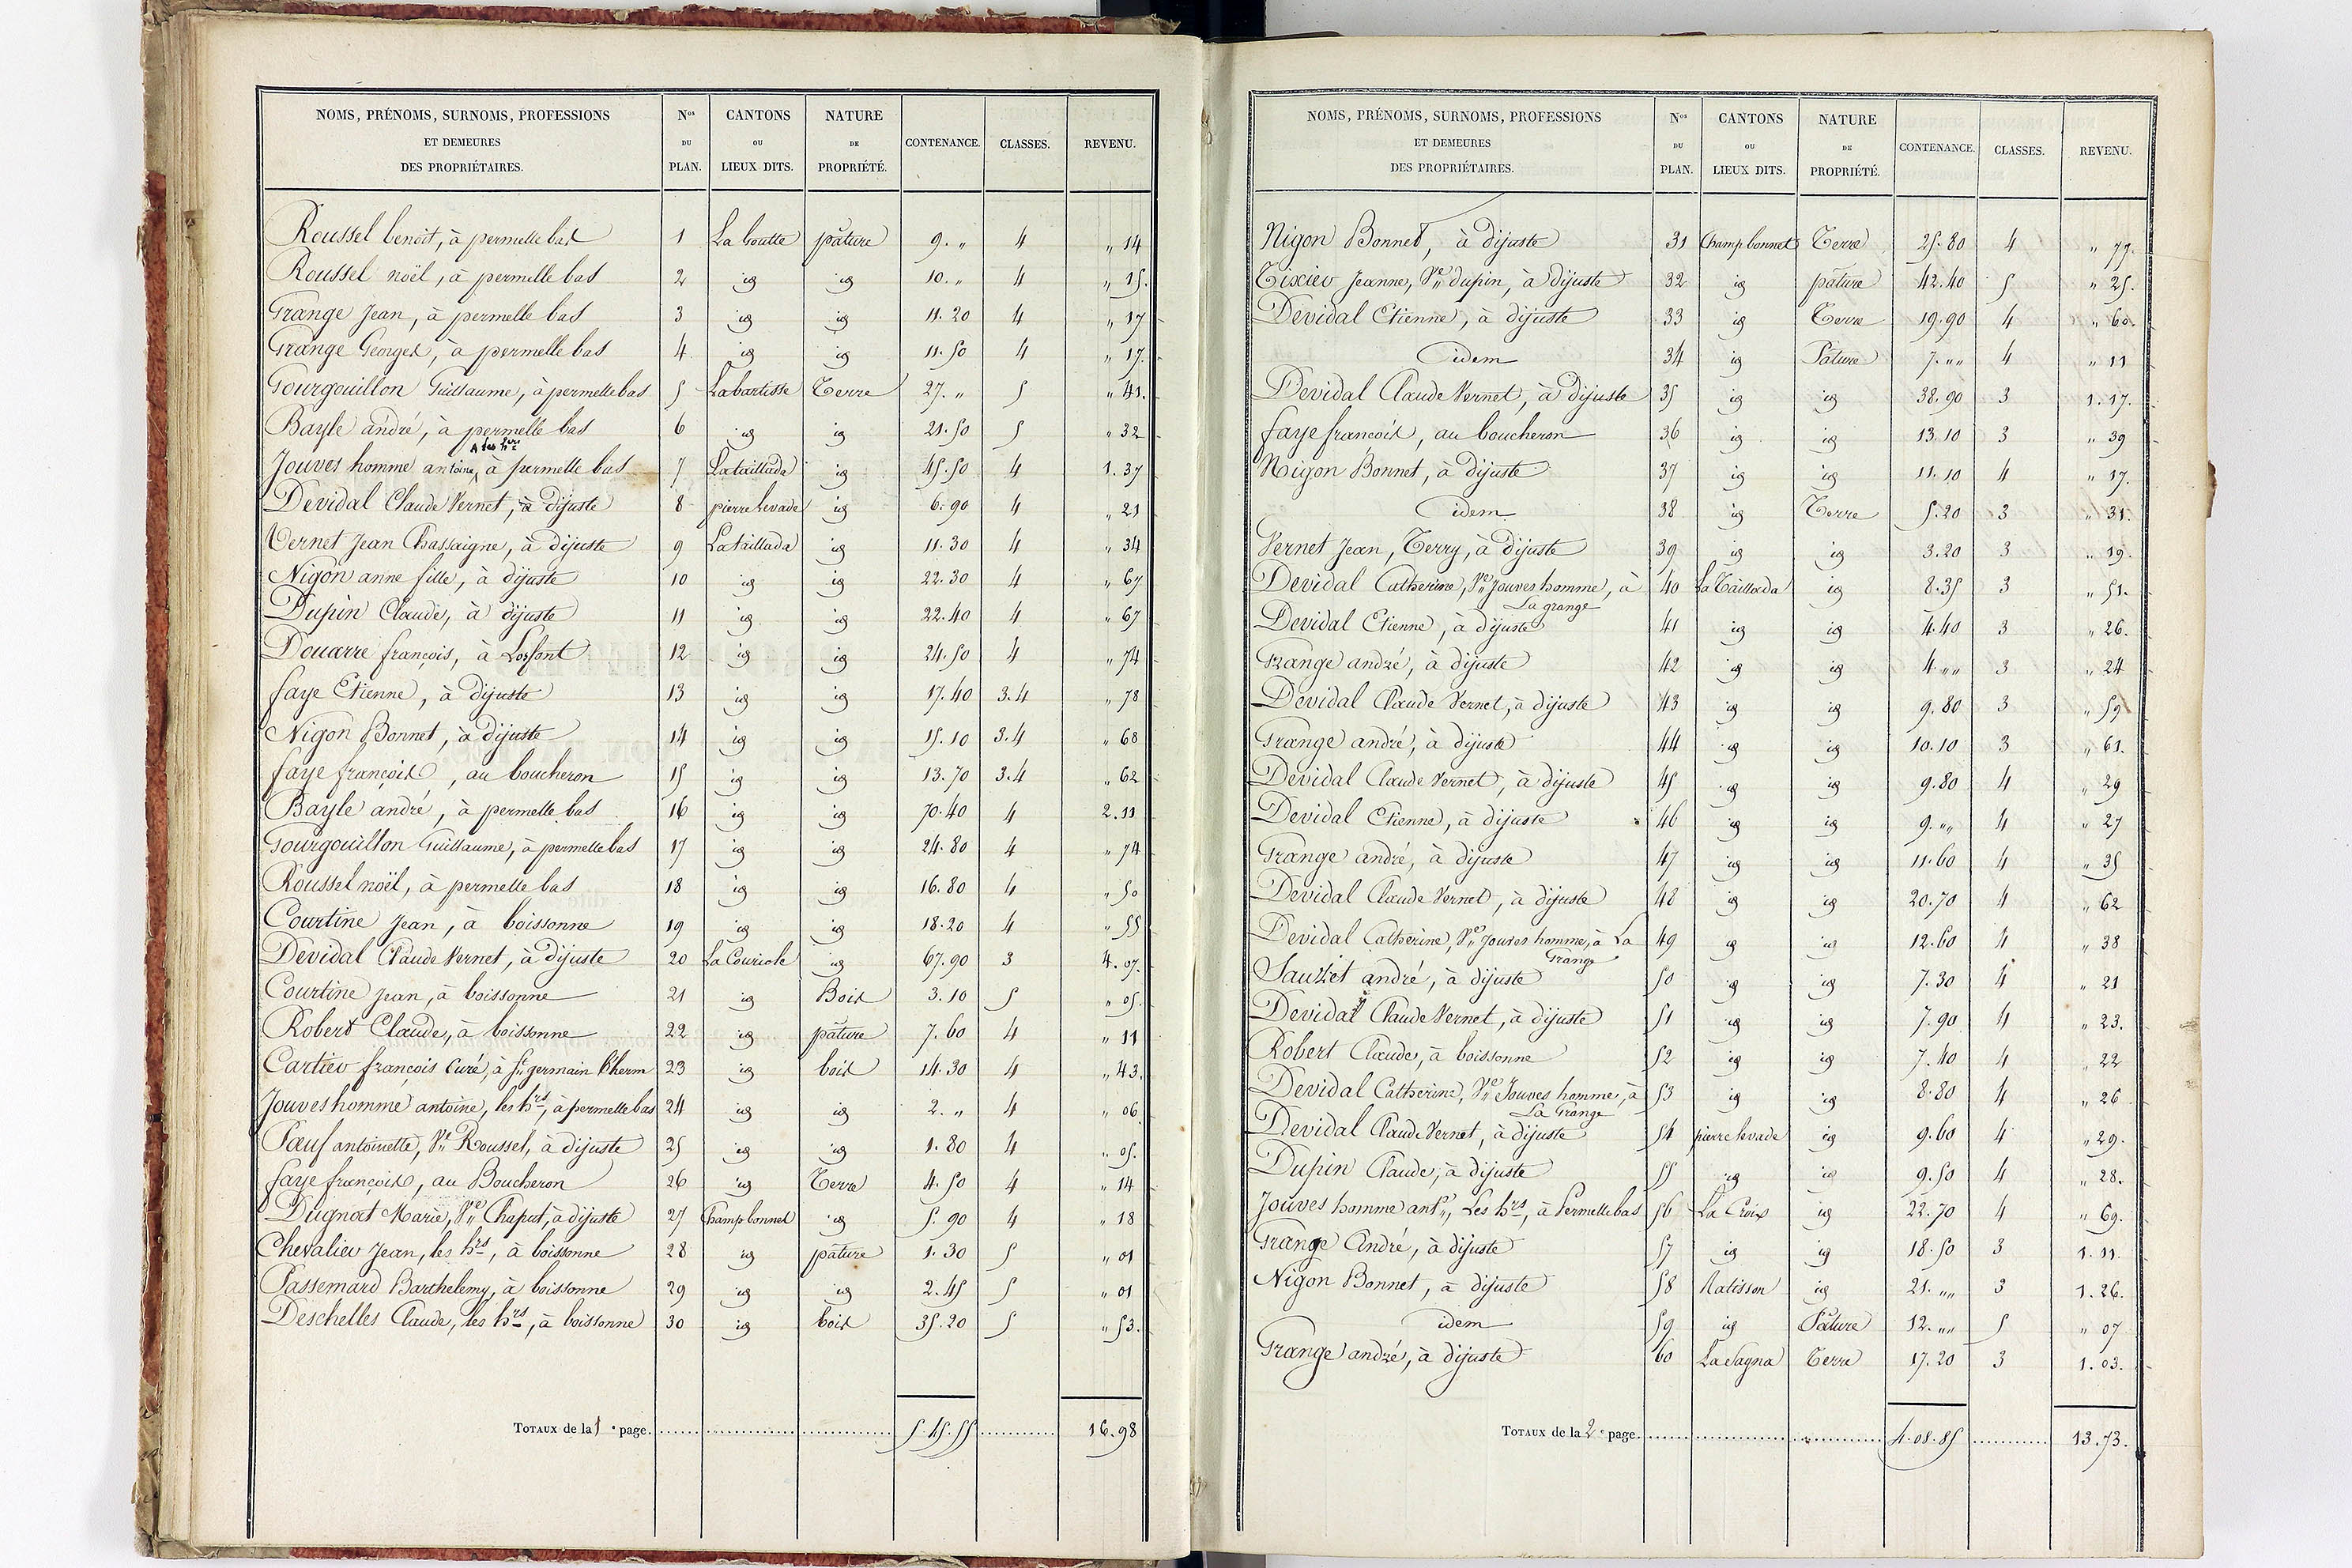 NOMS, PRÉNOMS, SURNOMS, PROFESSIONS ET DEMEURES DES PROPRIÉTAIRES. Nos DU PLAN. CANTONS OU LIEUX DITS. NATURE DE PROPRIÉTÉ. CONTENANCE. CLASSES. REVENU.
Roussel benoit, à permelle bas 1 La Goutte pâture 9. " 4 " 14
Roussel noël, à permelle bas 2 id id 10. " 4 " 15.
Grange Jean, à permelle bas 3 id id 11. 20 4 " 17
Grange Georges, à permelle bas 4 id id 11. 50 4 " 17.
Gourgouillon Guillaume, à permelle bas 5 Labartisse Terre 27. " 5 " 41.
Bayle andré, à permelle bas 6 id id 21. 50 5 " 32
les hrs
Jouves homme antoine, à permelle bas 7 Lataillada id 45. 50 4 1. 37
Devidal Claude Vernet, à dijuste 8 pierre levade id 6. 90 4 " 21
Vernet Jean Chassaigne, à dijuste 9 Lataillada id 11. 30 4 " 34
Nigon anne fille, à dijuste 10 id id 22. 30 4 " 67
Dupin Claude, à dijuste 11 id id 22. 40 4 " 67
Douarre françois, à Losfont 12 id id 24. 50 4 " 74
faye Etienne, à dijuste 13 id id 17. 40 3.4 " 78
Nigon Bonnet, à dijuste 14 id id 15. 10 3.4 " 68
faye françois, au boucheron 15 id id 13. 70 3.4 " 62
Bayle andré, à permelle bas 16 id id 70. 40 4 2. 11
Gourgouillon Guillaume, à permelle bas 17 id id 24. 80 4 " 74
Roussel noël, à permelle bas 18 id id 16. 80 4 " 50
Courtine Jean, à boissonne 19 id id 18. 20 4 " 55
Devidal Claude Vernet, à dijuste 20 La Couriole id 67. 90 3 4. 07.
Courtine Jean, à boissonne 21 id Bois 3. 10 5 " 05.
Robert Claude, à boissonne 22 id pâture 7. 60 4 " 11
Cartier françois Curé, à St germain l'herm 23 id bois 14. 30 4 " 43.
Jouves homme antoine, les hrs, à permelle bas 24 id id 2. " 4 " 06
Pauf antoinette, Ve Roussel, à dijuste 25 id id 1. 80 4 " 05.
faye françois, au Boucheron 26 id Terre 4. 50 4 " 14
Dugnat Marie, Ve Chaput, à dijuste 27 Champ bonnet id 5. 90 4 " 18
Chevalier Jean, les hrs, à boissonne 28 id pâture 1. 30 5 " 01
Passemard Barthelemy, à boissonne 29 id id 2. 45 5 " 01
Deschelles Claude, les hrs, à boissonne 30 id bois 35. 20 5 " 53.
TOTAUX de la 1e page. 5. 45. 55 16. 98
NOMS, PRÉNOMS, SURNOMS, PROFESSIONS ET DEMEURES DES PROPRIÉTAIRES. Nos DU PLAN. CANTONS OU LIEUX DITS. NATURE DE PROPRIÉTÉ. CONTENANCE. CLASSES. REVENU.
Nigon Bonnet, à dijuste 31 Champ bonnet Terre 25. 80 4 " 77.
Tixier Jeanne, Ve dupin, à dijuste 32 id pâture 42. 40 5 " 25.
Devidal Etienne, à dijuste 33 id Terre 19. 90 4 " 60.
idem 34 id Pâture 7. "" 4 " 11
Devidal Claude Vernet, à dijuste 35 id id 38. 90 3 1. 17.
faye françois, au boucheron 36 id id 13. 10 3 " 39
Nigon Bonnet, à dijuste 37 id id 11. 10 4 " 17.
idem 38 id Terre 5. 20 3 " 31.
Vernet Jean, Terry, à dijuste 39 id id 3. 20 3 " 19.
Devidal Catherine, Ve Jouves homme, à La grange 40 La Taillada id 8. 35 3 " 51.
Devidal Etienne, à dijuste 41 id id 4. 40 3 " 26.
Grange andré, à dijuste 42 id id 4. "" 3 " 24
Devidal Claude Vernet, à dijuste 43 id id 9. 80 3 " 59
Grange andré, à dijuste 44 id id 10. 10 3 " 61.
Devidal Claude Vernet, à dijuste 45 id id 9. 80 4 " 29
Devidal Etienne, à dijuste 46 id id 9. "" 4 " 27
Grange andré, à dijuste 47 id id 11. 60 4 " 35
Devidal Claude Vernet, à dijuste 48 id id 20. 70 4 " 62
Devidal Catherine, Ve Jouves homme, à La Grange 49 id id 12. 60 4 " 38
Sauzet andré, à dijuste 50 id id 7. 30 4 " 21
Devidal Claude Vernet, à dijuste 51 id id 7. 90 4 " 23.
Robert Claude, à boissonne 52 id id 7. 40 4 " 22
Devidal Catherine, Ve Jouves homme, à La Grange 53 id id 8. 80 4 " 26
Devidal Claude Vernet, à dijuste 54 pierre levade id 9. 60 4 " 29.
Dupin Claude, à dijuste 55 id id 9. 50 4 " 28.
Jouves homme ant", Les hrs, à Permelle bas 56 La Croix id 22. 70 4 " 69.
Grange André, à dijuste 57 id id 18. 50 3 1. 11
Nigon Bonnet, à dijuste 58 Ratisson id 21. "" 3 1. 26.
idem 59 id Pâture 12. "" 5 " 07
Grange andré, à dijuste 60 La Sagna Terre 17. 20 3 1. 03.
TOTAUX de la 2e page. 4. 08. 85 13. 73.